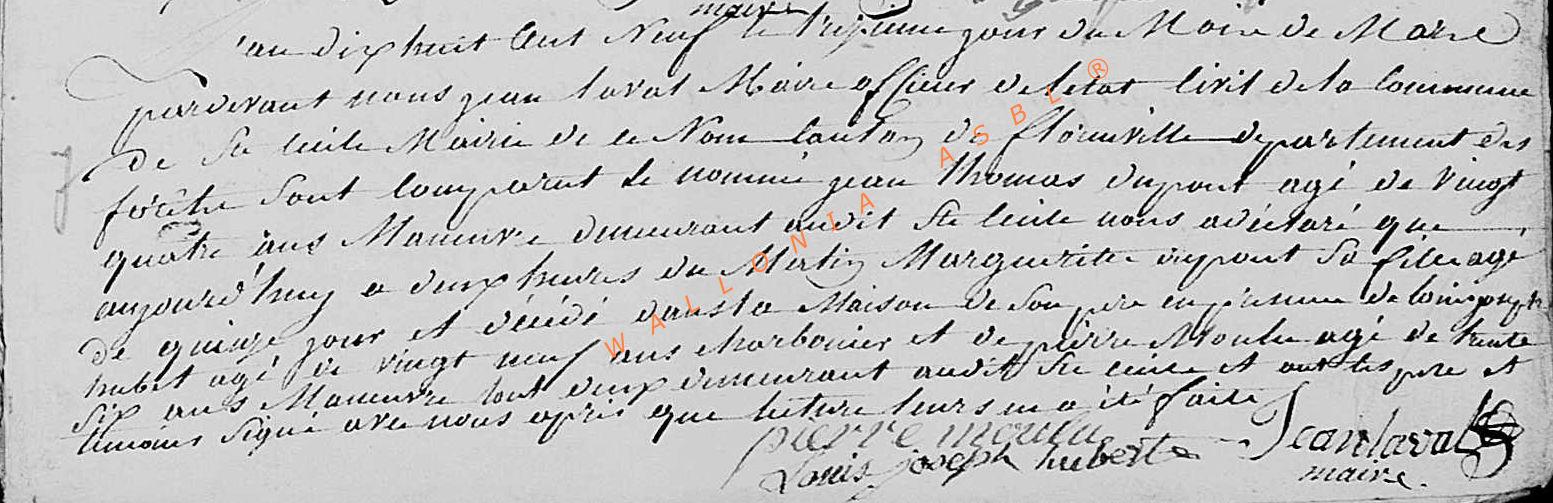 maire
l'an dix huit Cent Neuf le treizieme jour du Mois de Mars
pardevant nous jean laval Maire officier de letat Civil de la Commune
de Ste Cecile Mairie de ce Nom Canton de florenville departement des
forêts sont Comparut le nommé jean thomas dupont agé de vingt
quatre ans Manœuvre demeurant audit Ste Cecile nous adéclaré que
aujourd'huy a deux heures du Matin Marguerite dupont Sa fille agé
de quinze jour et décédé dans la Maison de Son pere en présence de Louis joseph
hubert agé de vingt neuf ans charbonier et de pierre Moulu agé de trente
six ans Manœuvre tout deux demeurant audit Ste Cecile et ont les pere et
témoins Signé avec nous après que lecture leurs en a été faite
pierre moulu
Louis joseph huberte Jean laval
maire
WALLONIA ASBL ®